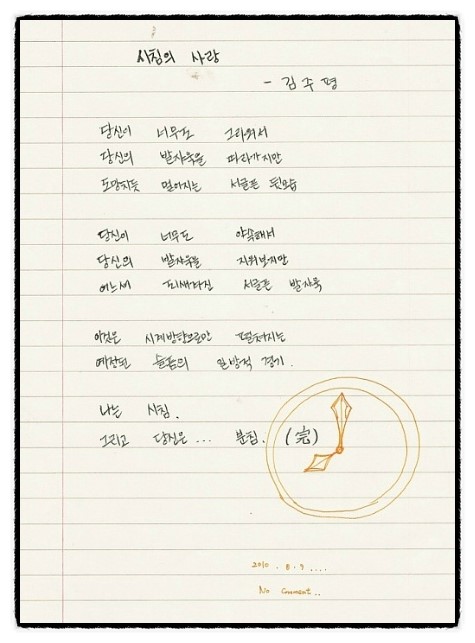 시침의 사랑
- 김주평
당신이 너무도 그리워서
당신의 발자욱을 따라가지만
도망치듯 멀어지는 서글픈 뒷모습
당신이 너무도 야속해서
당신의 발자욱을 지워보지만
어느새 되새겨진 서글픈 발자욱
이것은 시계방향으로만 펼쳐지는
예정된 슬픔의 일방적 경기.
나는 시침.
그리고 당신은... 분침. (完)
2010 . 8 . 9 ....
No Comment..